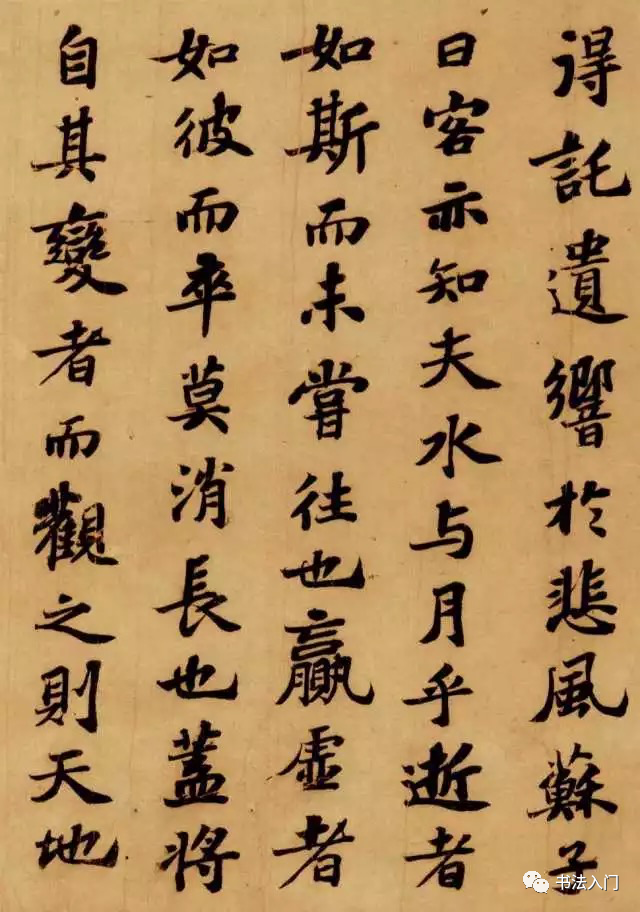 得託遺響於悲風蘇子
曰客亦知夫水与月乎逝者
如斯而未甞往也贏虛者
如彼而卒莫消長也蓋將
自其變者而觀之則天地
书法入门